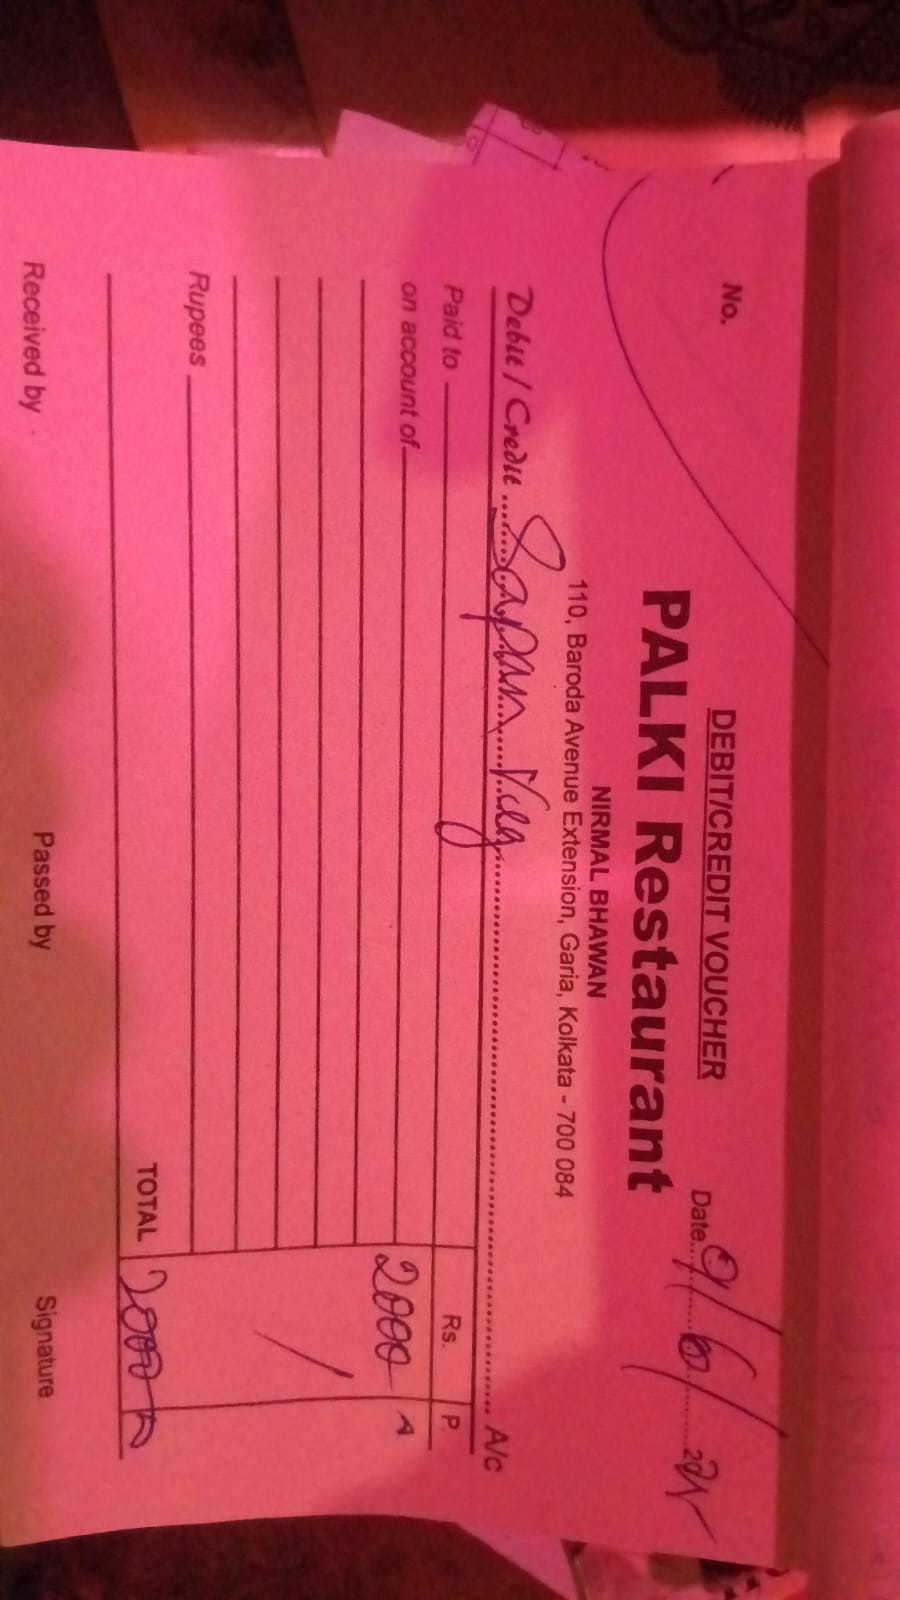 DEBIT/CREDIT VOUCHER
No.
Date 9/6/
PALKI Restaurant
NIRMAL BHAWAN
110, Baroda Avenue Extension, Garia, Kolkata - 700 084
Debit / Credit Sapan A/c
Paid to Rs. P.
on account of 2000
Rupees
TOTAL 2000
Received by Passed by Signature